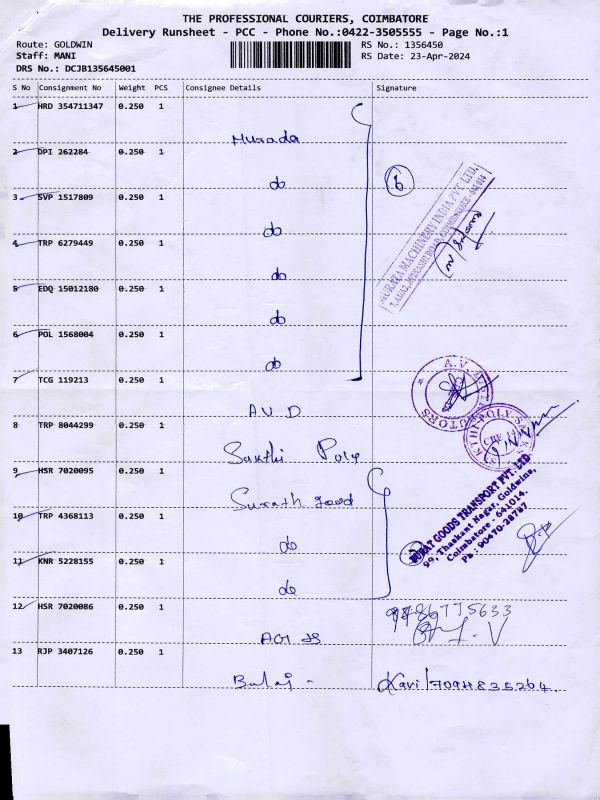 THE PROFESSIONAL COURIERS, COIMBATORE
Delivery Runsheet - PCC - Phone No.:0422-3505555 - Page No.:1
Route: GOLDWIN
RS No.: 1356450
Staff: MANI
RS Date: 23-Apr-2024
DRS No.: DCJB135645001
S No Consignment No Weight PCS Consignee Details Signature
1 HRD 354711347 0.250 1
Murada
2 DPI 262284 0.250 1
do
6
3 SVP 1517809 0.250 1
do
MURATA MACHINERY INDIA PVT LTD.
4 TRP 6279449 0.250 1
do
5 EDQ 15012180 0.250 1
do
6 POL 1568004 0.250 1
do
7 TCG 119213 0.250 1
AVD
A.V.
8 TRP 8044299 0.250 1
Sakthi Poly
9 HSR 7020095 0.250 1
Surath good
SURAT GOODS TRANSPORT PVT. LTD.
99, Thaskant Nagar, Goldwins,
Coimbatore - 641014.
Ph : 90470-28787
10 TRP 4368113 0.250 1
do
11 KNR 5228155 0.250 1
do
12 HSR 7020086 0.250 1
13 RJP 3407126 0.250 1
Balaj -